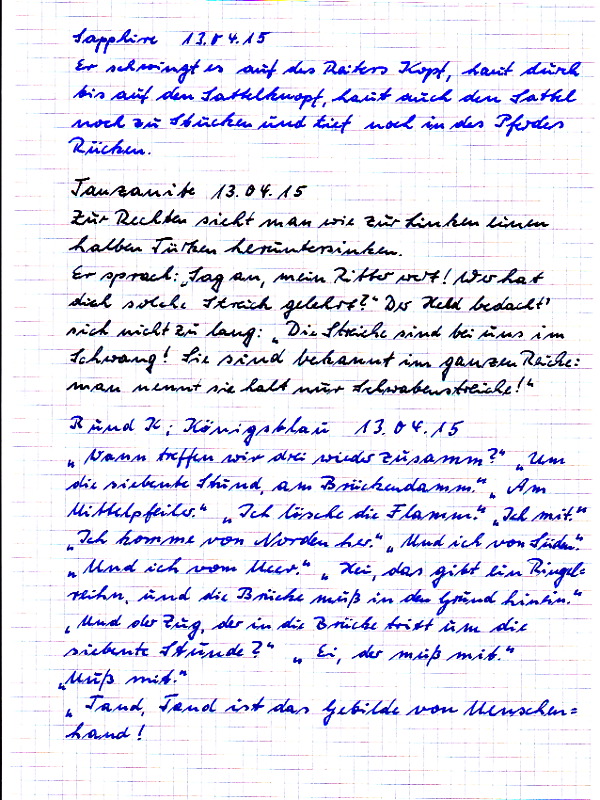 Sapphire 13.04.15
Er schwingt es auf des Reiters Kopf, haut durch
bis auf den Sattelknopf, haut auch den Sattel
noch zu Stücken und tief noch in des Pferdes
Rücken.
Tanzanite 13.04.15
Zur Rechten sieht man wie zur Linken einen
halben Türken heruntersinken.
Er sprach: „Sag an, mein Ritter wert! Wer hat
dich solche Streich gelehrt?" Der Held bedacht'
sich nicht zu lang: „Die Streiche sind bei uns im
Schwang! Sie sind bekannt im ganzen Reiche:
man nennt sie halt nur Schwabenstreiche!"
R und K; Königsblau 13.04.15
„Wann treffen wir drei wieder zusamm?" „Um
die siebente Stund, am Brückendamm." „Am
Mittelpfeiler." „Ich lösche die Flamm." „Ich mit."
„Ich komme von Norden her." „Und ich von Süden."
„Und ich vom Meer." „Hei, das gibt ein Ringel-
reihn, und die Brücke muß in den Grund hinein."
„Und der Zug, der in die Brücke tritt um die
siebente Stunde?" „Ei, der muß mit."
„Muß mit."
„Tand, Tand ist das Gebilde von Menschen=
hand!